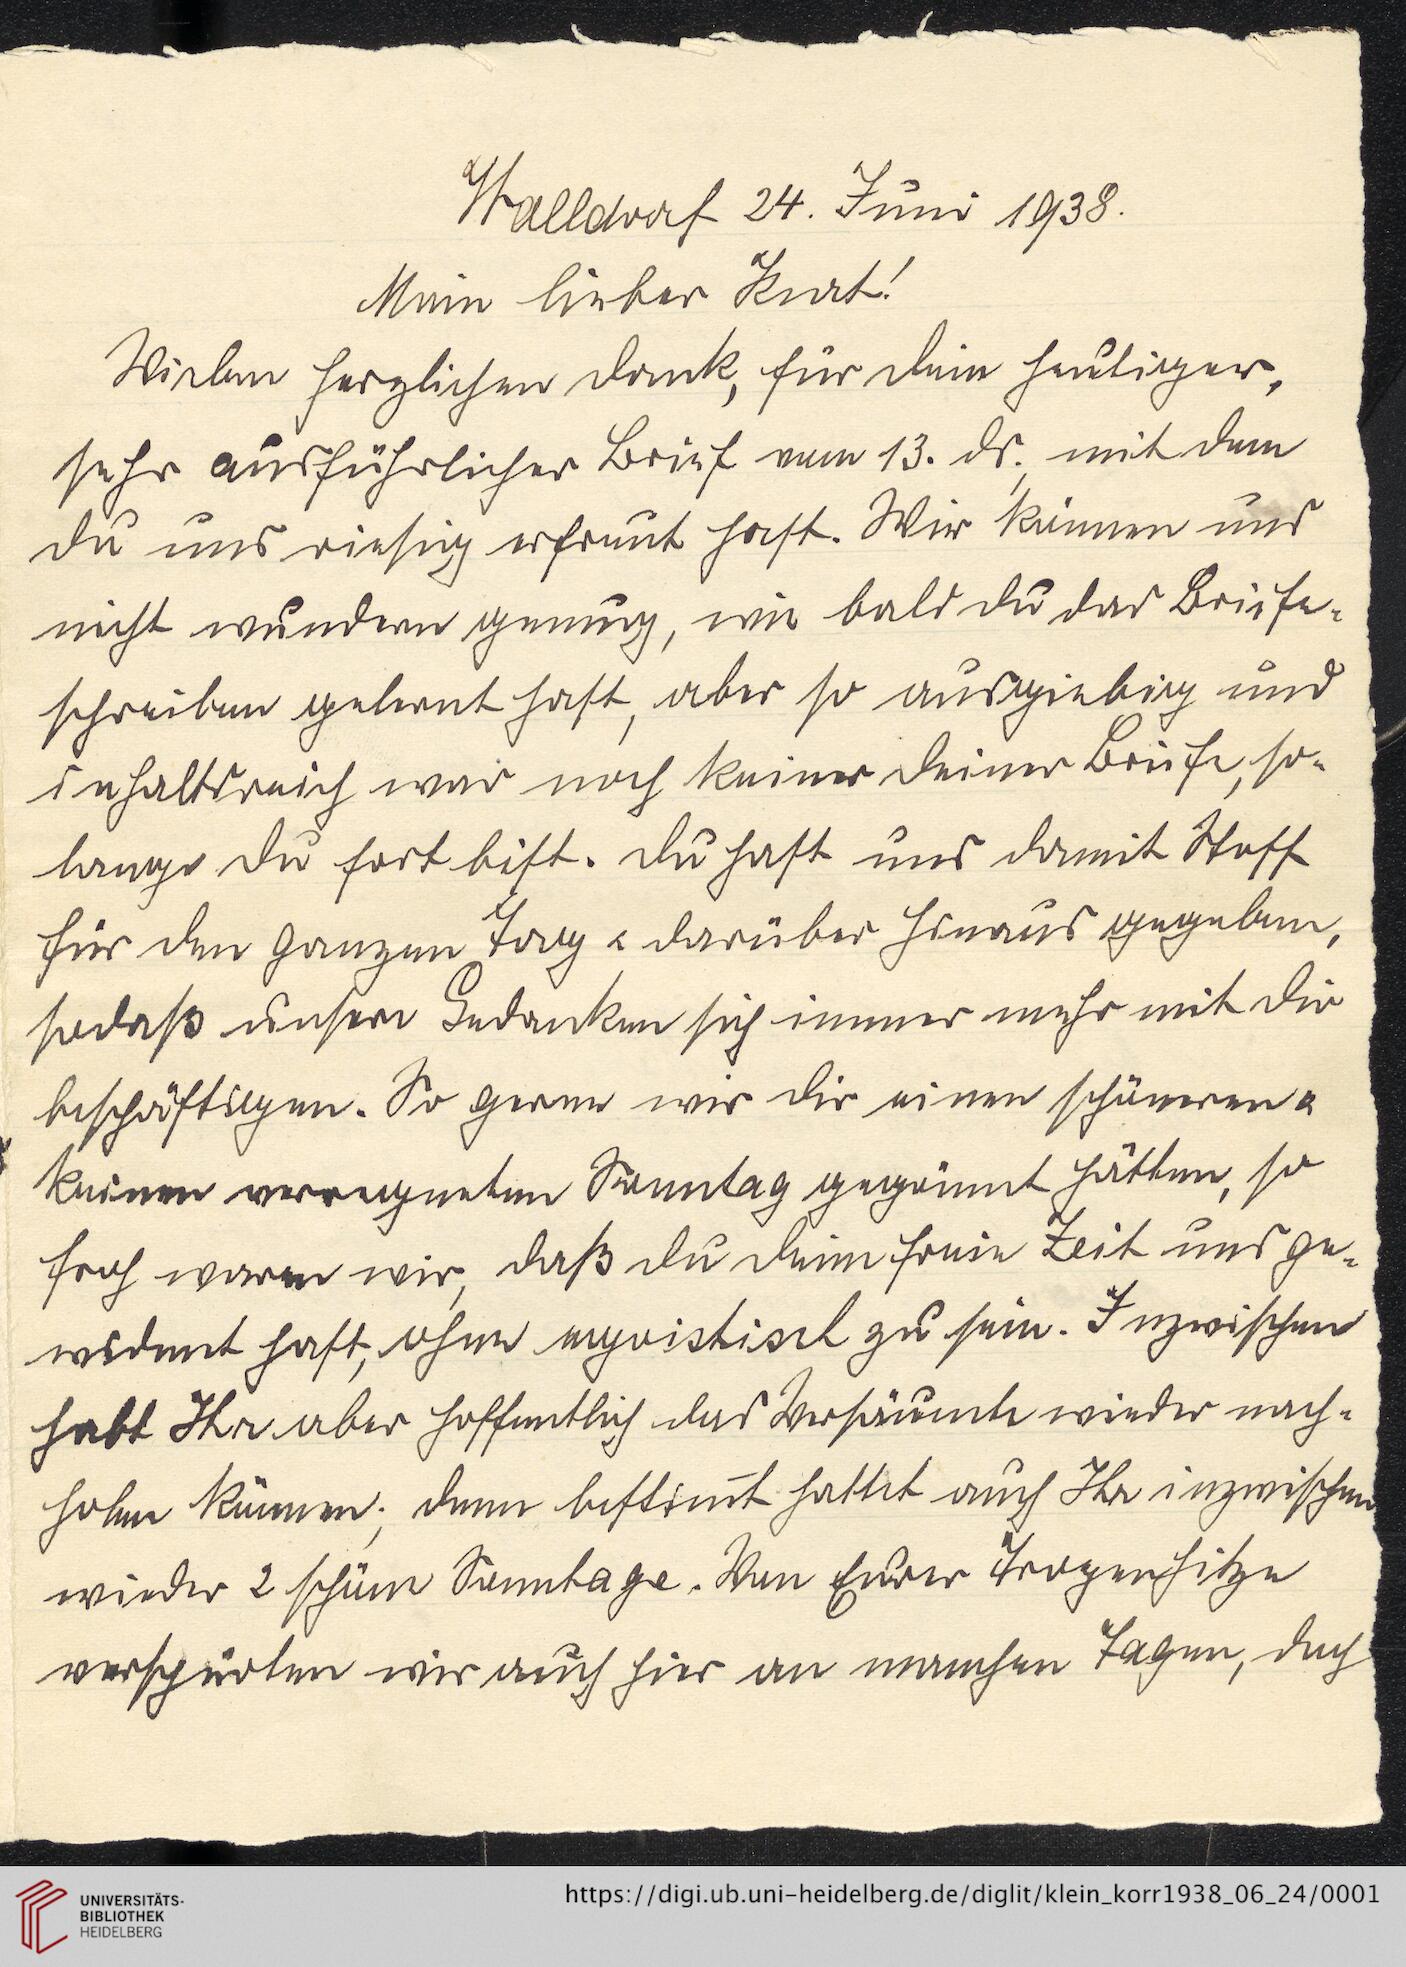 Walldorf 24. Juni 1938.
Mein lieber Kurt!
Vielen herzlichen Dank, für dein heutiger,
sehr ausführlicher Brief vom 13. ds., mit dem
du uns riesig erfreut hast. Wir können uns
nicht wundern genug, wie bald du das Briefe-
schreiben gelernt hast, aber so ausgiebig und
inhaltsreich war noch keiner deiner Briefe, so-
lange du fort bist. Du hast uns damit Stoff
für den ganzen Tag & darüber hinaus gegeben,
sodaß unsere Gedanken sich immer mehr mit dir
beschäftigen. So gerne wir dir einen schöneren &
keinen verregneten Sonntag gegönnt hätten, so
froh waren wir, daß du deine freie Zeit uns ge-
widmet hast, ohne egoistisch zu sein. Inzwischen
habt Ihr aber hoffentlich das Versäumte wieder nach-
holen können; denn bestim̅t hattet auch Ihr inzwischen
wieder 2 schöne Sonntage. Von Eurer Tropenhitze
verspürten wir auch hier an manchen Tagen, doch
UNIVERSITÄTS-
BIBLIOTHEK
HEIDELBERG
https://digi.ub.uni-heidelberg.de/diglit/klein_korr1938_06_24/0001